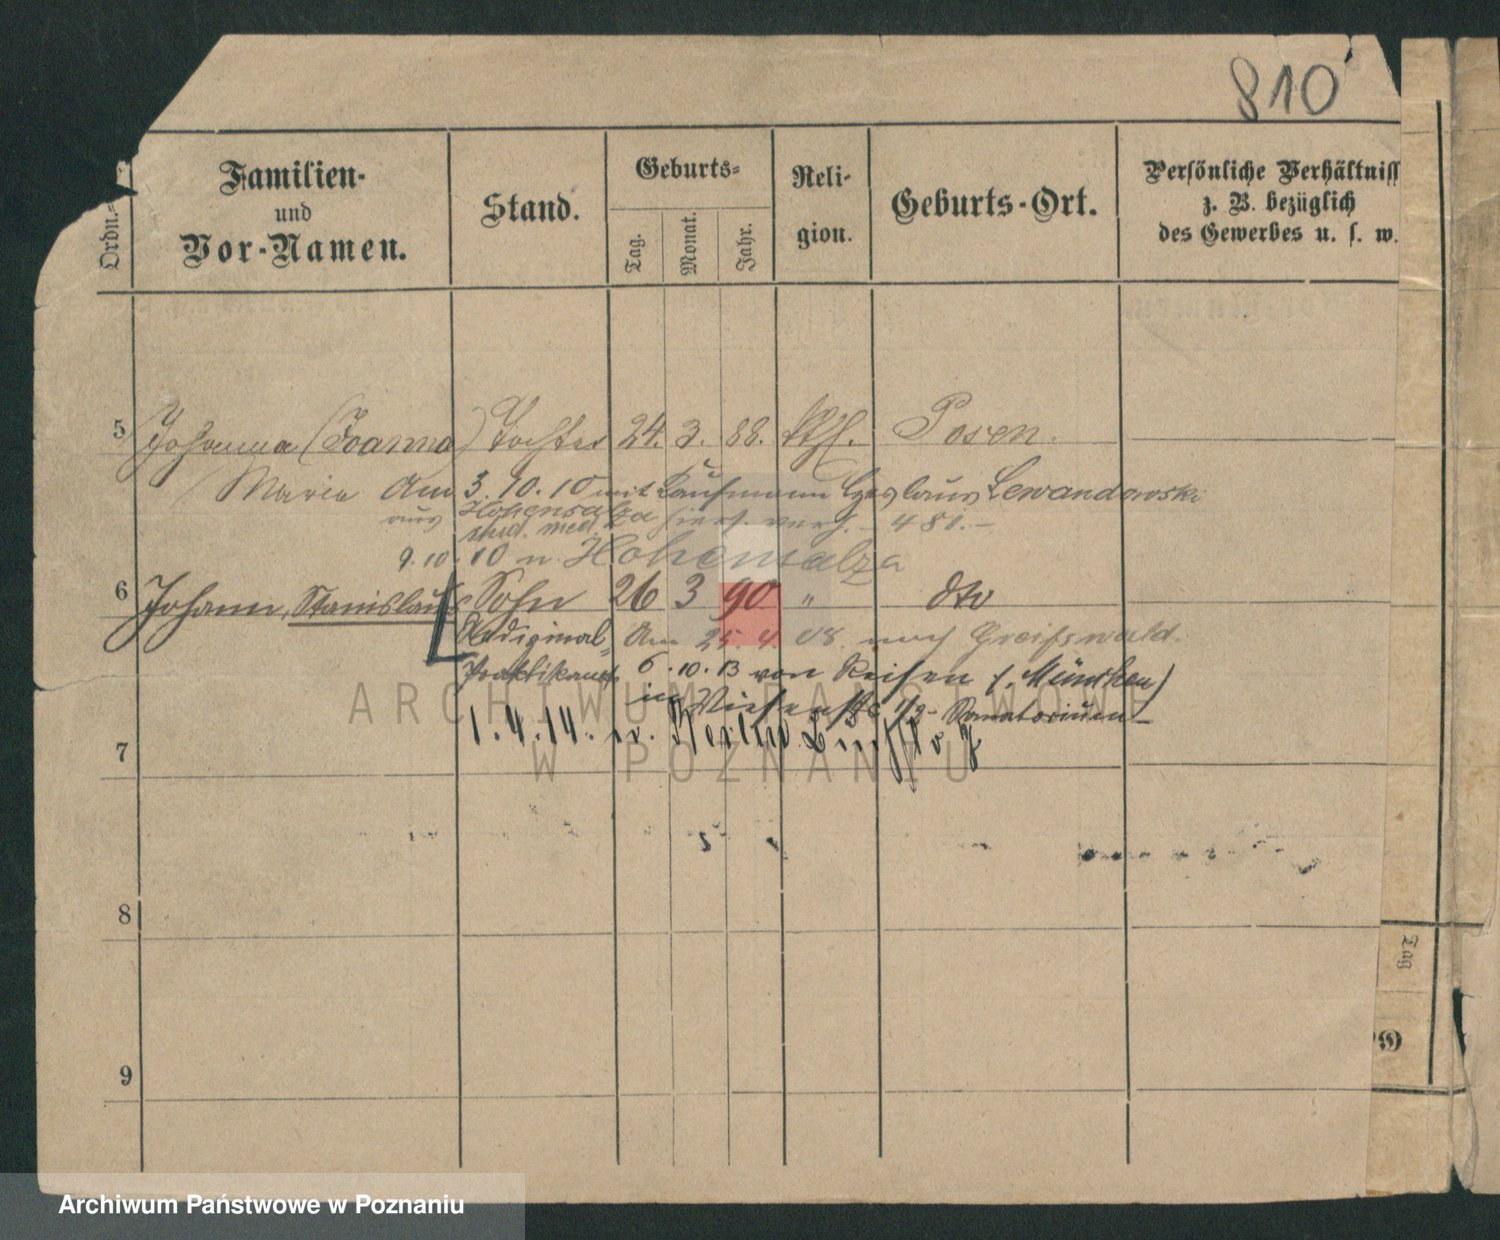 810
Ordn.-
Familien-
und
Vor-Namen.
Stand.
Geburts-
Tag.
Monat.
Jahr.
Reli-
gion.
Geburts-Ort.
Persönliche Verhältniss
z. B. bezüglich
des Gewerbes u. s. w.
5 Johanna (Joanna) Tochter 24. 3. 88. kth. Posen.
Maria Am 3.10.10 mit Kaufmann Czeslaus Lewandowski
aus Hohensalza hiers. verh. 481.-
stud. med.
9.10.10 n. Hohensalza
6 Johann, Stanislaus Sohn 26 3 90 " dto
Medizinal- Am 25.4.08. nach Greifswald.
Praktikant 6.10.13 von Reisen (München)
in 1/2 - Sanatorium -
1.4.14. n. Berlin
7
8
9
Tag
ARCHIWUM PAŃSTWOWE
W POZNANIU
Archiwum Państwowe w Poznaniu